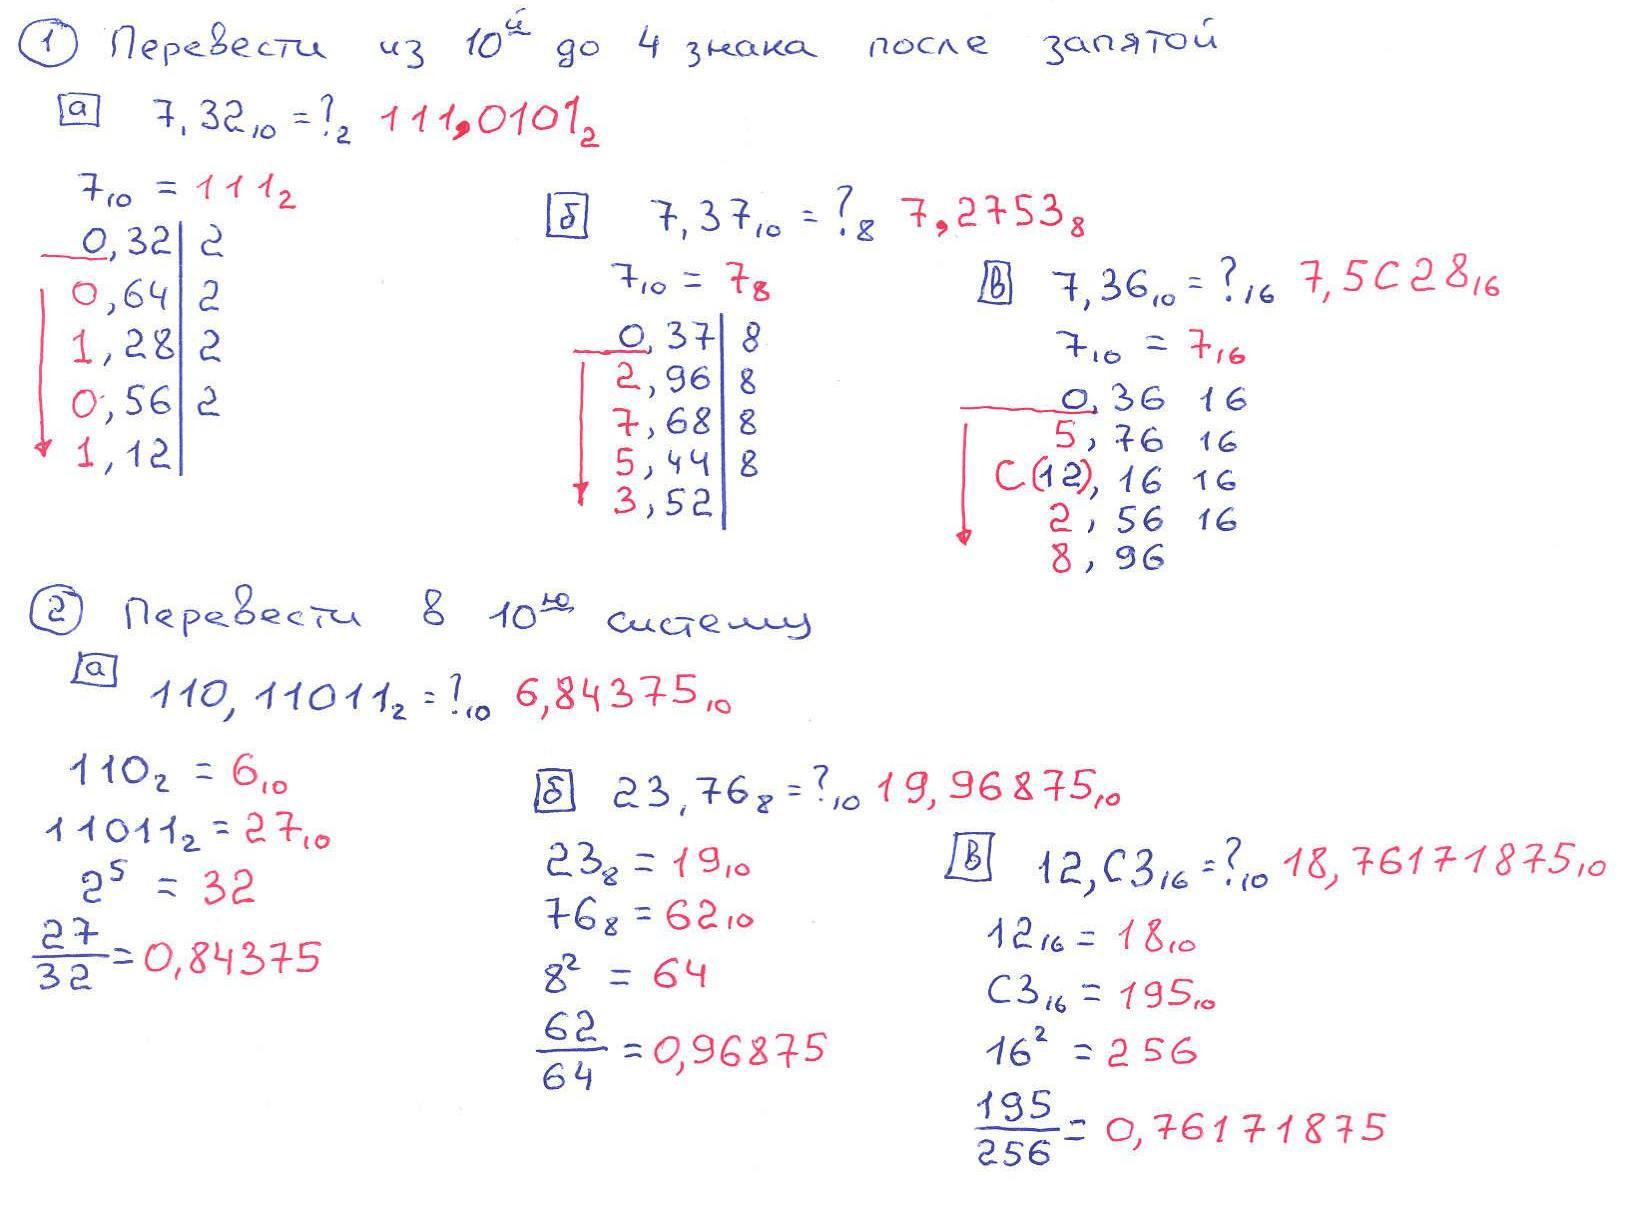 1 Перевести из 10й до 4 знака после запятой
а 7,32₁₀ = ?₂ 111,0101₂
7₁₀ = 111₂
0,32 | 2
0,64 | 2
1,28 | 2
0,56 | 2
1,12 |
б 7,37₁₀ = ?₈ 7,2753₈
7₁₀ = 7₈
0,37 | 8
2,96 | 8
7,68 | 8
5,44 | 8
3,52 |
в 7,36₁₀ = ?₁₆ 7,5C28₁₆
7₁₀ = 7₁₆
0,36 16
5,76 16
C(12),16 16
2,56 16
8,96
2 Перевести в 10ю систему
а 110,11011₂ = ?₁₀ 6,84375₁₀
110₂ = 6₁₀
11011₂ = 27₁₀
2⁵ = 32
27/32 = 0,84375
б 23,76₈ = ?₁₀ 19,96875₁₀
23₈ = 19₁₀
76₈ = 62₁₀
8² = 64
62/64 = 0,96875
в 12,C3₁₆ = ?₁₀ 18,76171875₁₀
12₁₆ = 18₁₀
C3₁₆ = 195₁₀
16² = 256
195/256 = 0,76171875